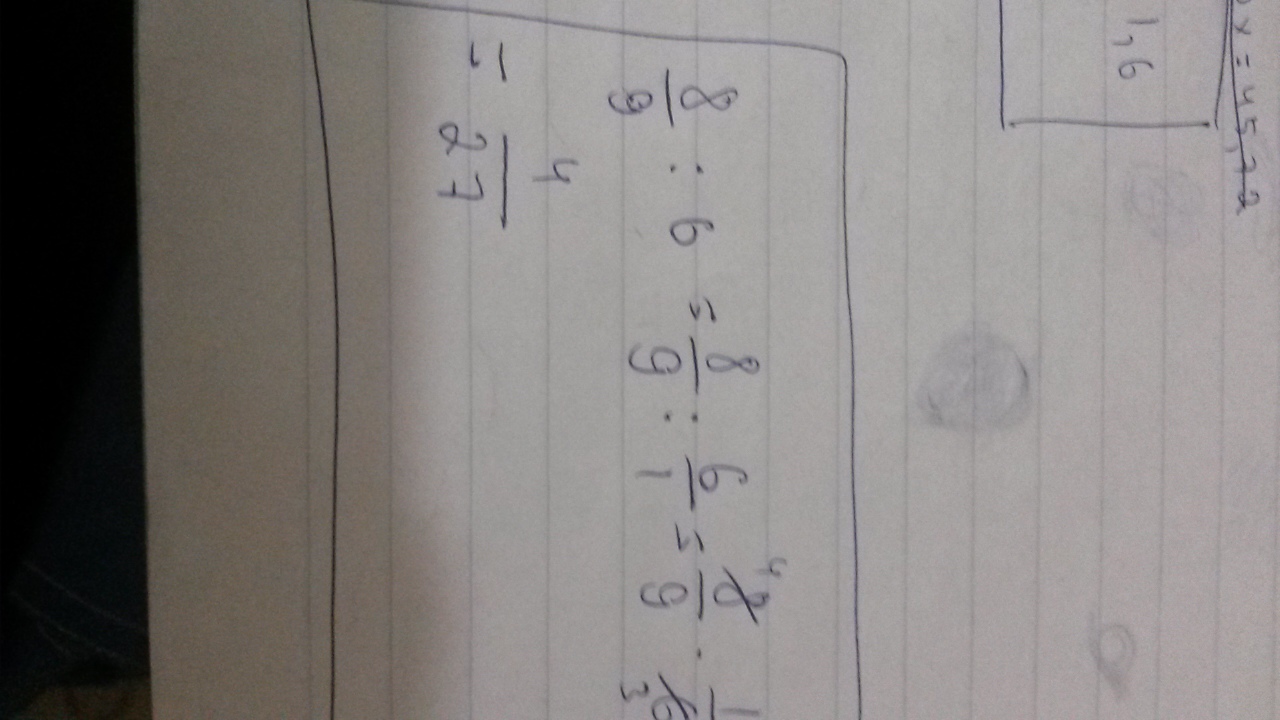 x = 45,72
1,6
8/9 : 6 = 8/9 : 6/1 = 8/9 · 1/6
4 3
= 4/27